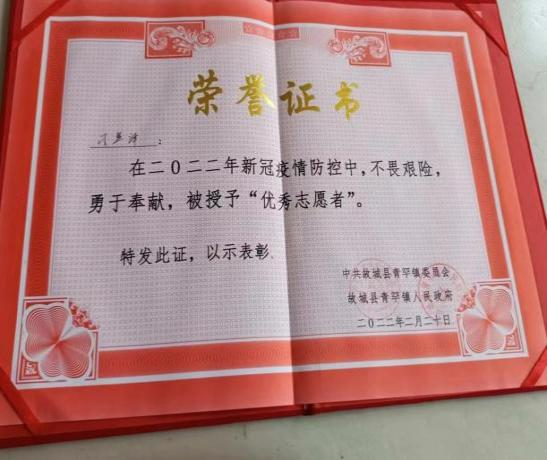 荣誉证书
在二〇二二年新冠疫情防控中，不畏艰险，
勇于奉献，被授予“优秀志愿者”。
特发此证，以示表彰
中共故城县青罕镇委员会
故城县青罕镇人民政府
二〇二二年二月二十日